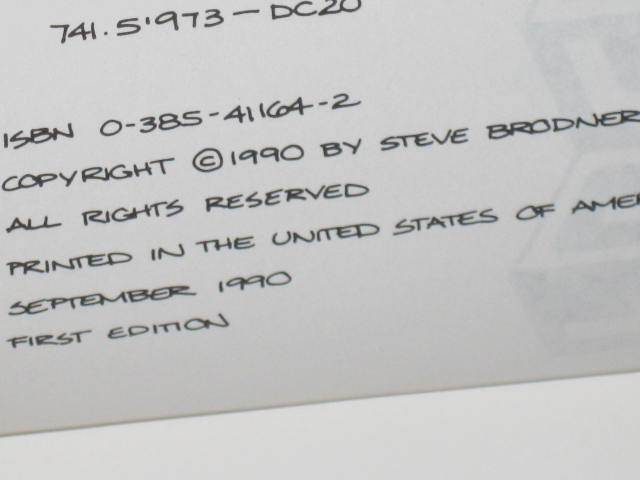 741.5'973—DC20
ISBN 0-385-41164-2
COPYRIGHT © 1990 BY STEVE BRODNER
ALL RIGHTS RESERVED
PRINTED IN THE UNITED STATES OF AME
SEPTEMBER 1990
FIRST EDITION